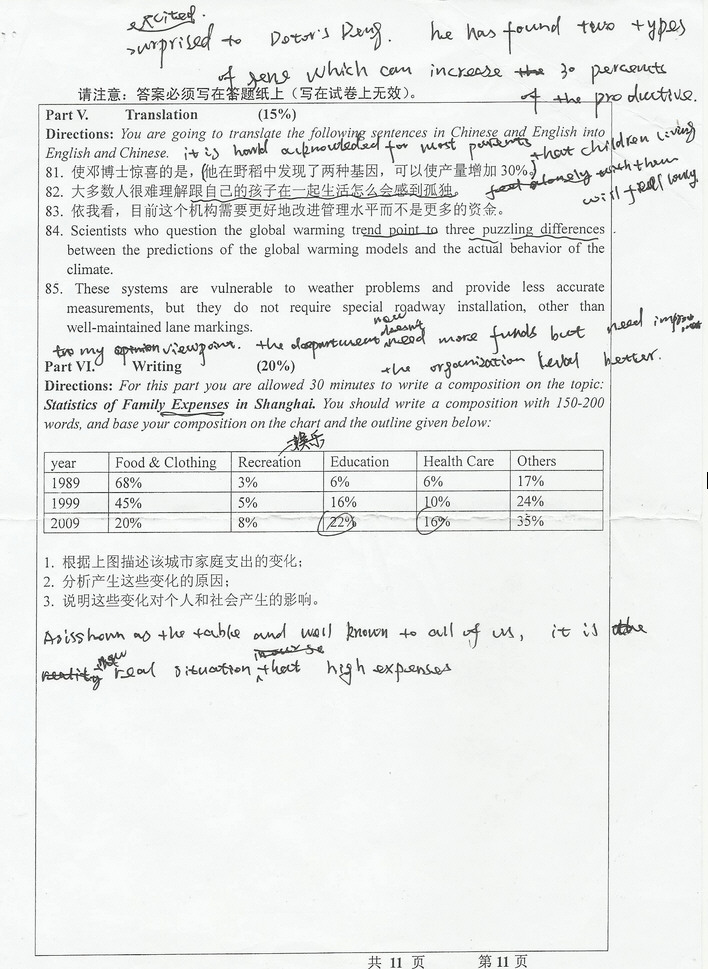 excited.
surprised to Dotor's Deng. he has found two types
of gene which can increase the 30 percents
of the productive.
请注意：答案必须写在答题纸上（写在试卷上无效）。
Part V. Translation (15%)
Directions: You are going to translate the following sentences in Chinese and English into
English and Chinese.
it is hard acknowleded for most parents that children living
feel alonely with them
will feel lonly.
81. 使邓博士惊喜的是，他在野稻中发现了两种基因，可以使产量增加 30%。
82. 大多数人很难理解跟自己的孩子在一起生活怎么会感到孤独。
83. 依我看，目前这个机构需要更好地改进管理水平而不是更多的资金。
84. Scientists who question the global warming trend point to three puzzling differences
between the predictions of the global warming models and the actual behavior of the
climate.
85. These systems are vulnerable to weather problems and provide less accurate
measurements, but they do not require special roadway installation, other than
well-maintained lane markings.
now
doesn't
to my opinion viewpoint. the department need more funds but need improvement
the organization level better.
Part VI. Writing (20%)
Directions: For this part you are allowed 30 minutes to write a composition on the topic:
Statistics of Family Expenses in Shanghai. You should write a composition with 150-200
words, and base your composition on the chart and the outline given below:
娱乐
year Food & Clothing Recreation Education Health Care Others
1989 68% 3% 6% 6% 17%
1999 45% 5% 16% 10% 24%
2009 20% 8% 22% 16% 35%
1. 根据上图描述该城市家庭支出的变化；
2. 分析产生这些变化的原因；
3. 说明这些变化对个人和社会产生的影响。
As is shown as the table and well known to all of us, it is the
reality real situation that high expenses
共 11 页 第 11 页